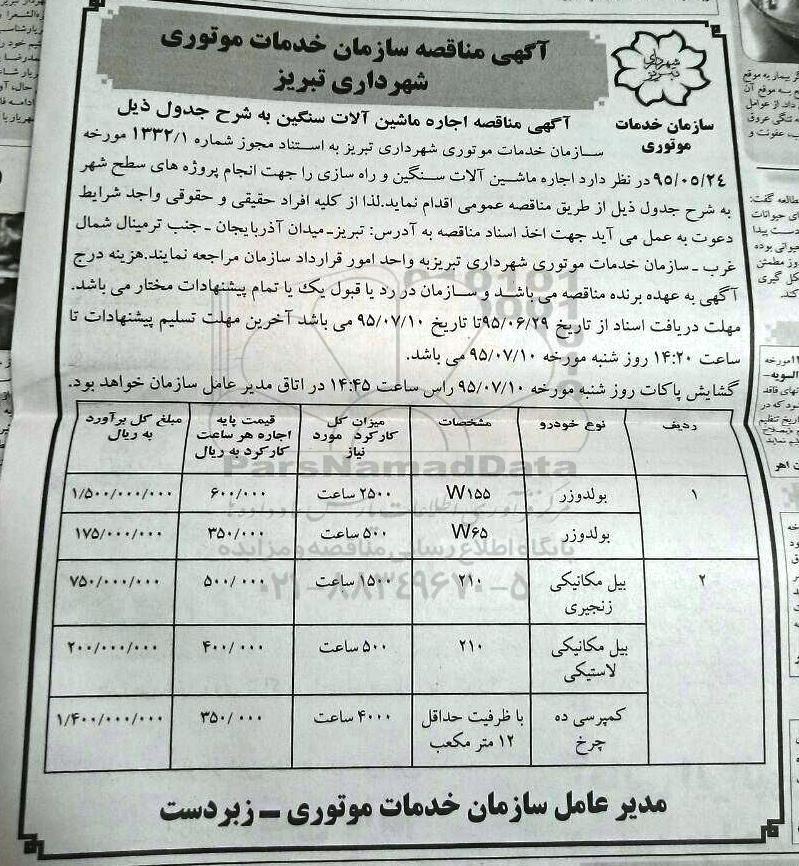 آگهی مناقصه سازمان خدمات موتوری
شهرداری تبریز
شهرداری
تبریز
سازمان خدمات
موتوری
آگهی مناقصه اجاره ماشین آلات سنگین به شرح جدول ذیل
سازمان خدمات موتوری شهرداری تبریز به استناد مجوز شماره ۱۳۳۲/۱ مورخه
۹۵/۰۵/۲۴ در نظر دارد اجاره ماشین آلات سنگین و راه سازی را جهت انجام پروژه های سطح شهر
به شرح جدول ذیل از طریق مناقصه عمومی اقدام نماید.لذا از کلیه افراد حقیقی و حقوقی واجد شرایط
دعوت به عمل می آید جهت اخذ اسناد مناقصه به آدرس: تبریز-میدان آذربایجان - جنب ترمینال شمال
غرب - سازمان خدمات موتوری شهرداری تبریزبه واحد امور قرارداد سازمان مراجعه نمایند.هزینه درج
آگهی به عهده برنده مناقصه می باشد و سازمان در رد یا قبول یک یا تمام پیشنهادات مختار می باشد.
مهلت دریافت اسناد از تاریخ ۹۵/۰۶/۲۹تا تاریخ ۹۵/۰۷/۱۰ می باشد آخرین مهلت تسلیم پیشنهادات تا
ساعت ۱۴:۲۰ روز شنبه مورخه ۹۵/۰۷/۱۰ می باشد.
گشایش پاکات روز شنبه مورخه ۹۵/۰۷/۱۰ راس ساعت ۱۴:۴۵ در اتاق مدیر عامل سازمان خواهد بود.
ردیف نوع خودرو مشخصات میزان کل کارکرد مورد نیاز قیمت پایه اجاره هر ساعت کارکرد به ریال مبلغ کل برآورد به ریال
۱ بولدوزر W۱۵۵ ۲۵۰۰ ساعت ۶۰۰/۰۰۰ ۱/۵۰۰/۰۰۰/۰۰۰
بولدوزر W۶۵ ۵۰۰ ساعت ۳۵۰/۰۰۰ ۱۷۵/۰۰۰/۰۰۰
۲ بیل مکانیکی زنجیری ۲۱۰ ۱۵۰۰ ساعت ۵۰۰/۰۰۰ ۷۵۰/۰۰۰/۰۰۰
بیل مکانیکی لاستیکی ۲۱۰ ۵۰۰ ساعت ۴۰۰/۰۰۰ ۲۰۰/۰۰۰/۰۰۰
کمپرسی ده چرخ با ظرفیت حداقل ۱۲ متر مکعب ۴۰۰۰ ساعت ۳۵۰/۰۰۰ ۱/۴۰۰/۰۰۰/۰۰۰
ParsNamadData
پایگاه اطلاع رسانی مناقصه و مزایده
۰۲۱-۸۸۳۴۹۶۷۰-۵
مدیر عامل سازمان خدمات موتوری - زبردست